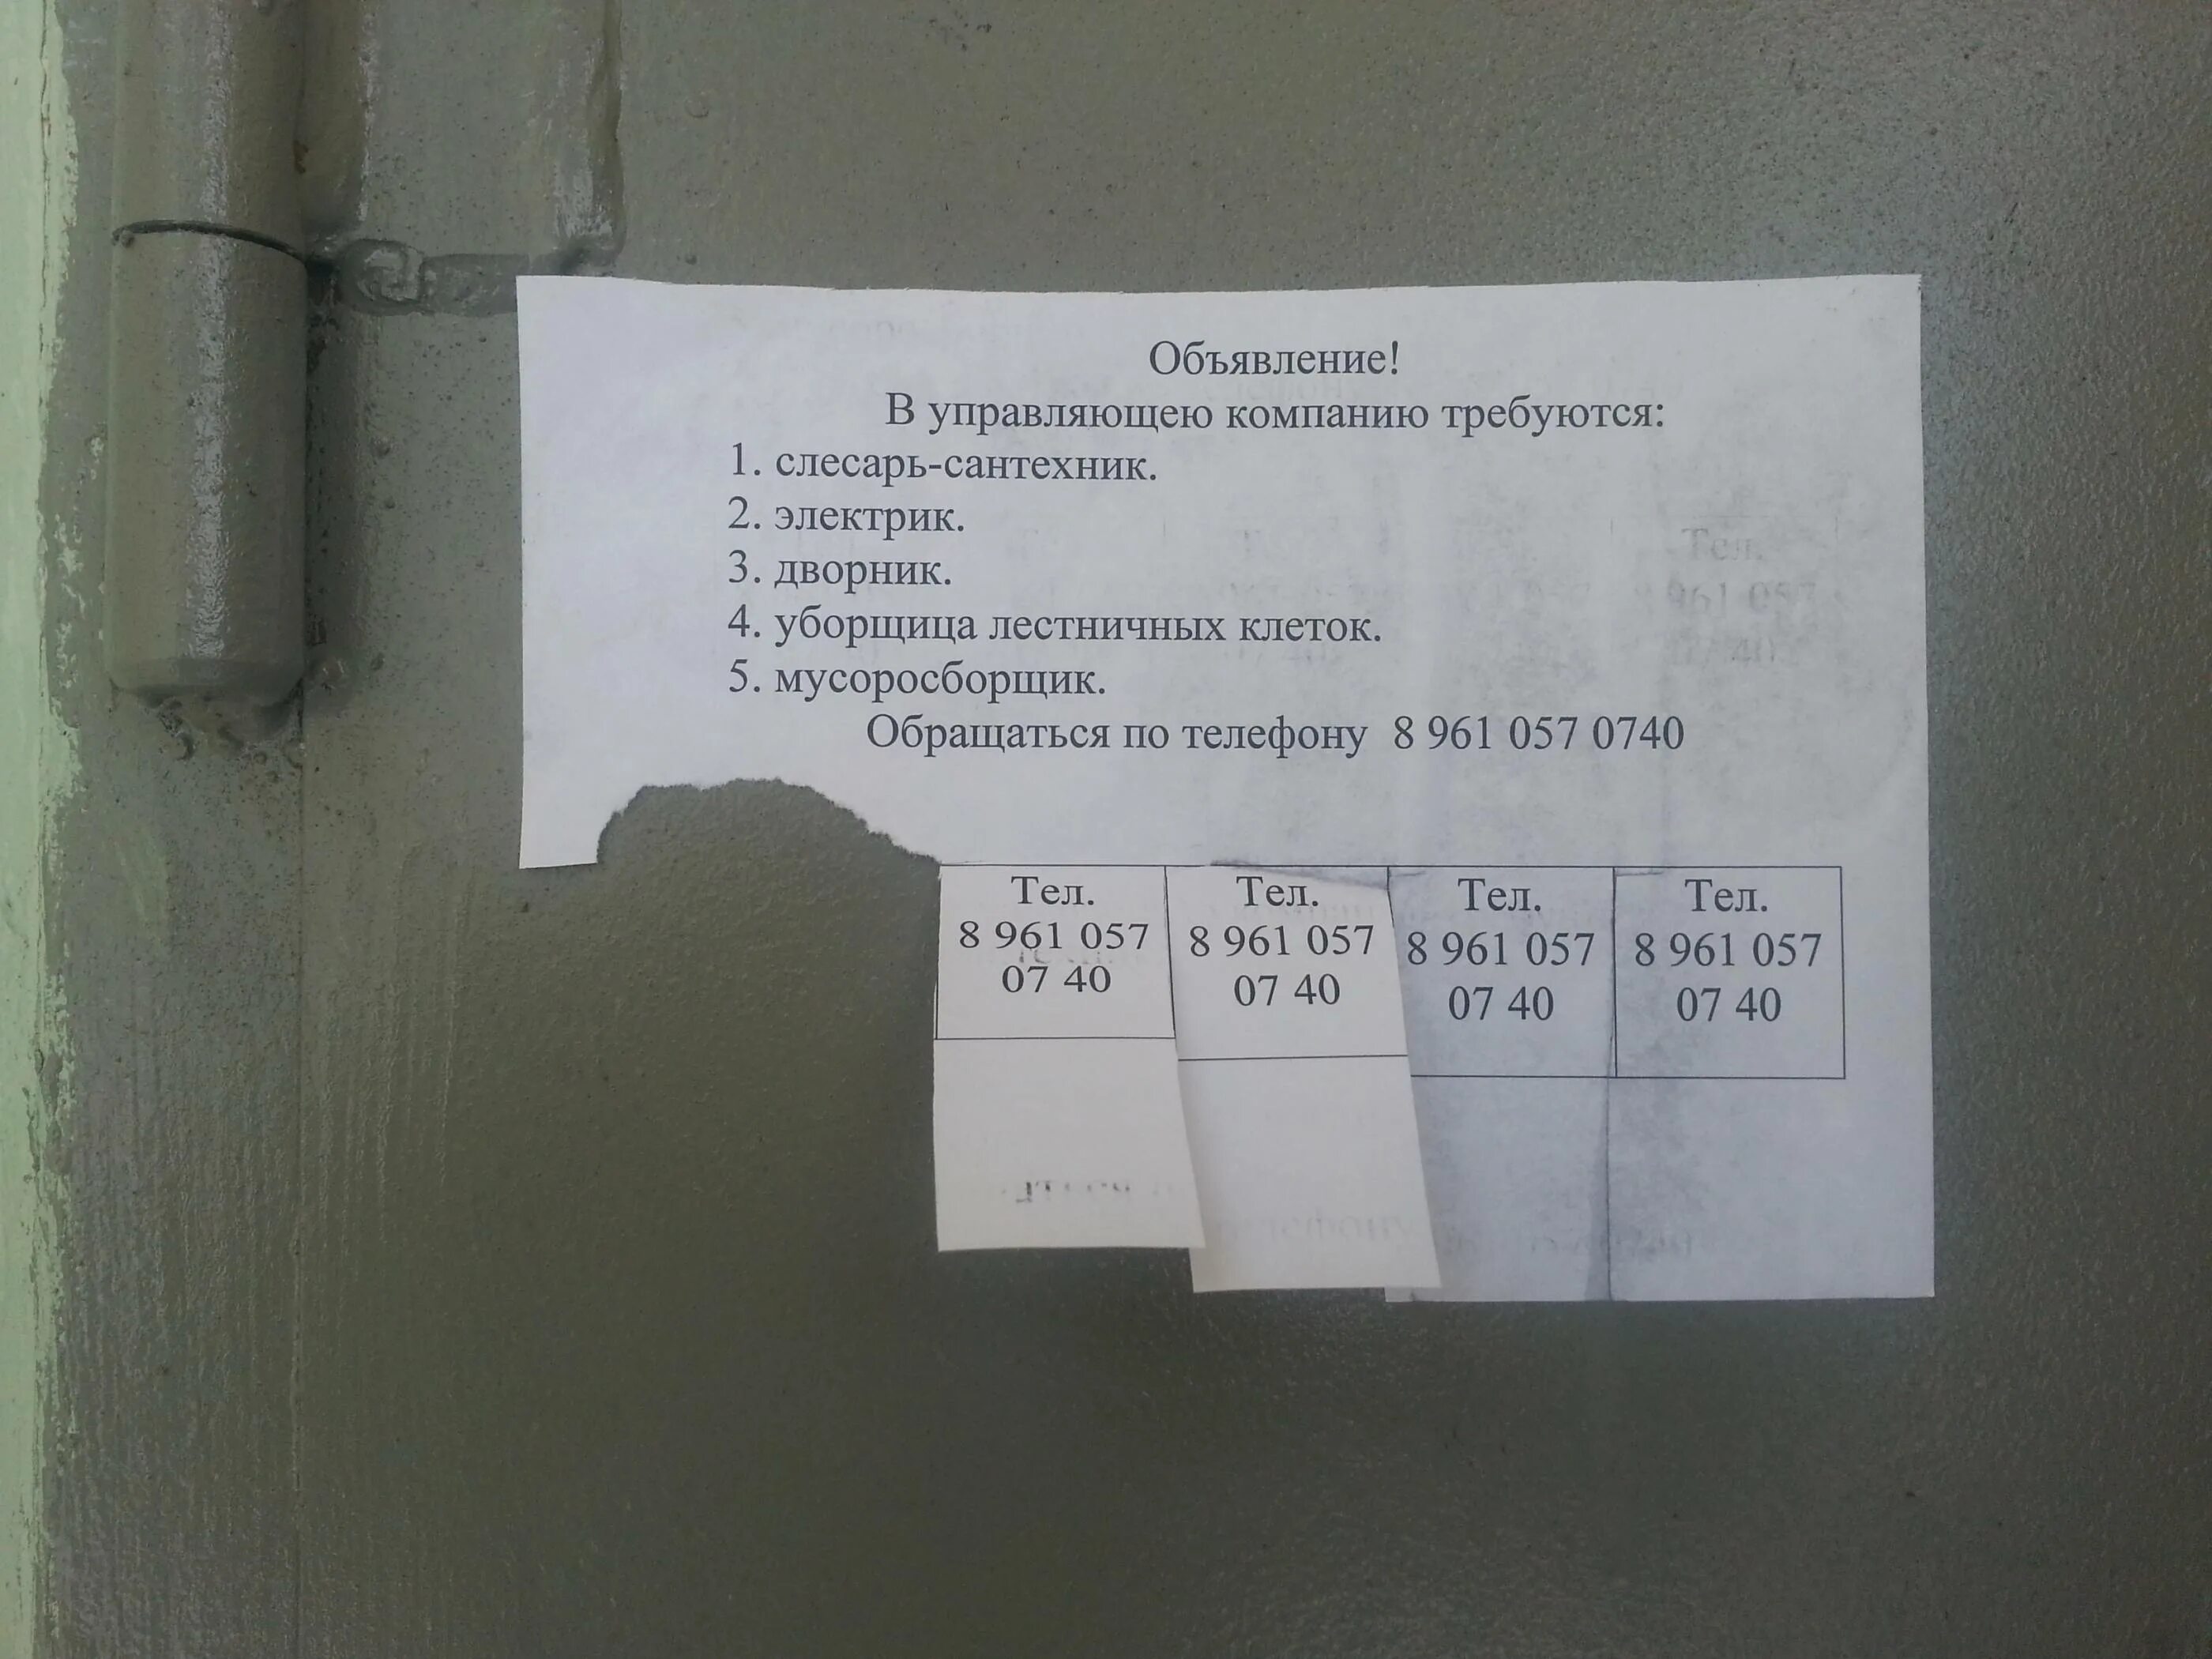 Объявление!
В управляющею компанию требуются:
1. слесарь-сантехник.
2. электрик.
3. дворник.
4. уборщица лестничных клеток.
5. мусоросборщик.
Обращаться по телефону 8 961 057 0740
Тел.
8 961 057
07 40
Тел.
8 961 057
07 40
Тел.
8 961 057
07 40
Тел.
8 961 057
07 40